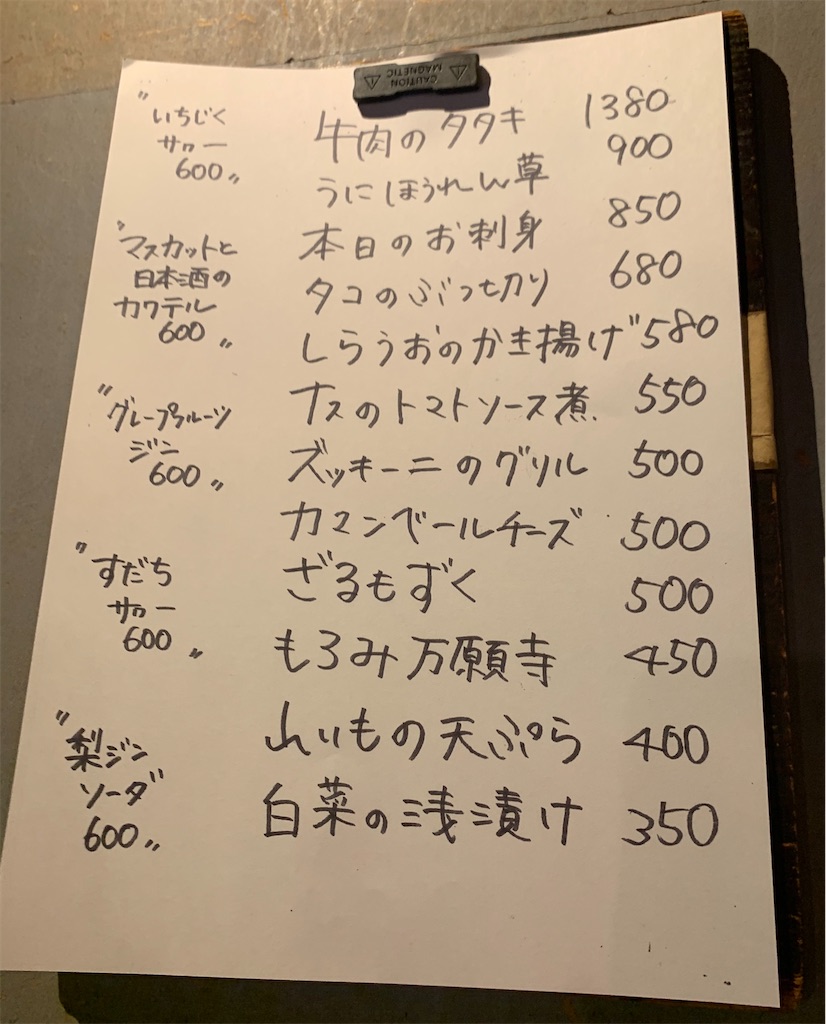 CAUTION
MAGNETIC
"いちじく
サワー
600"
"マスカットと
日本酒の
カクテル
600"
"グレープフルーツ
ジン
600"
"すだち
サワー
600"
"梨ジン
ソーダ
600"
牛肉のタタキ 1380
うにほうれん草 900
本日のお刺身 850
タコのぶつ切り 680
しらうおのかき揚げ 580
ナスのトマトソース煮 550
ズッキーニのグリル 500
カマンベールチーズ 500
ざるもずく 500
もろみ万願寺 450
山いもの天ぷら 400
白菜の浅漬け 350